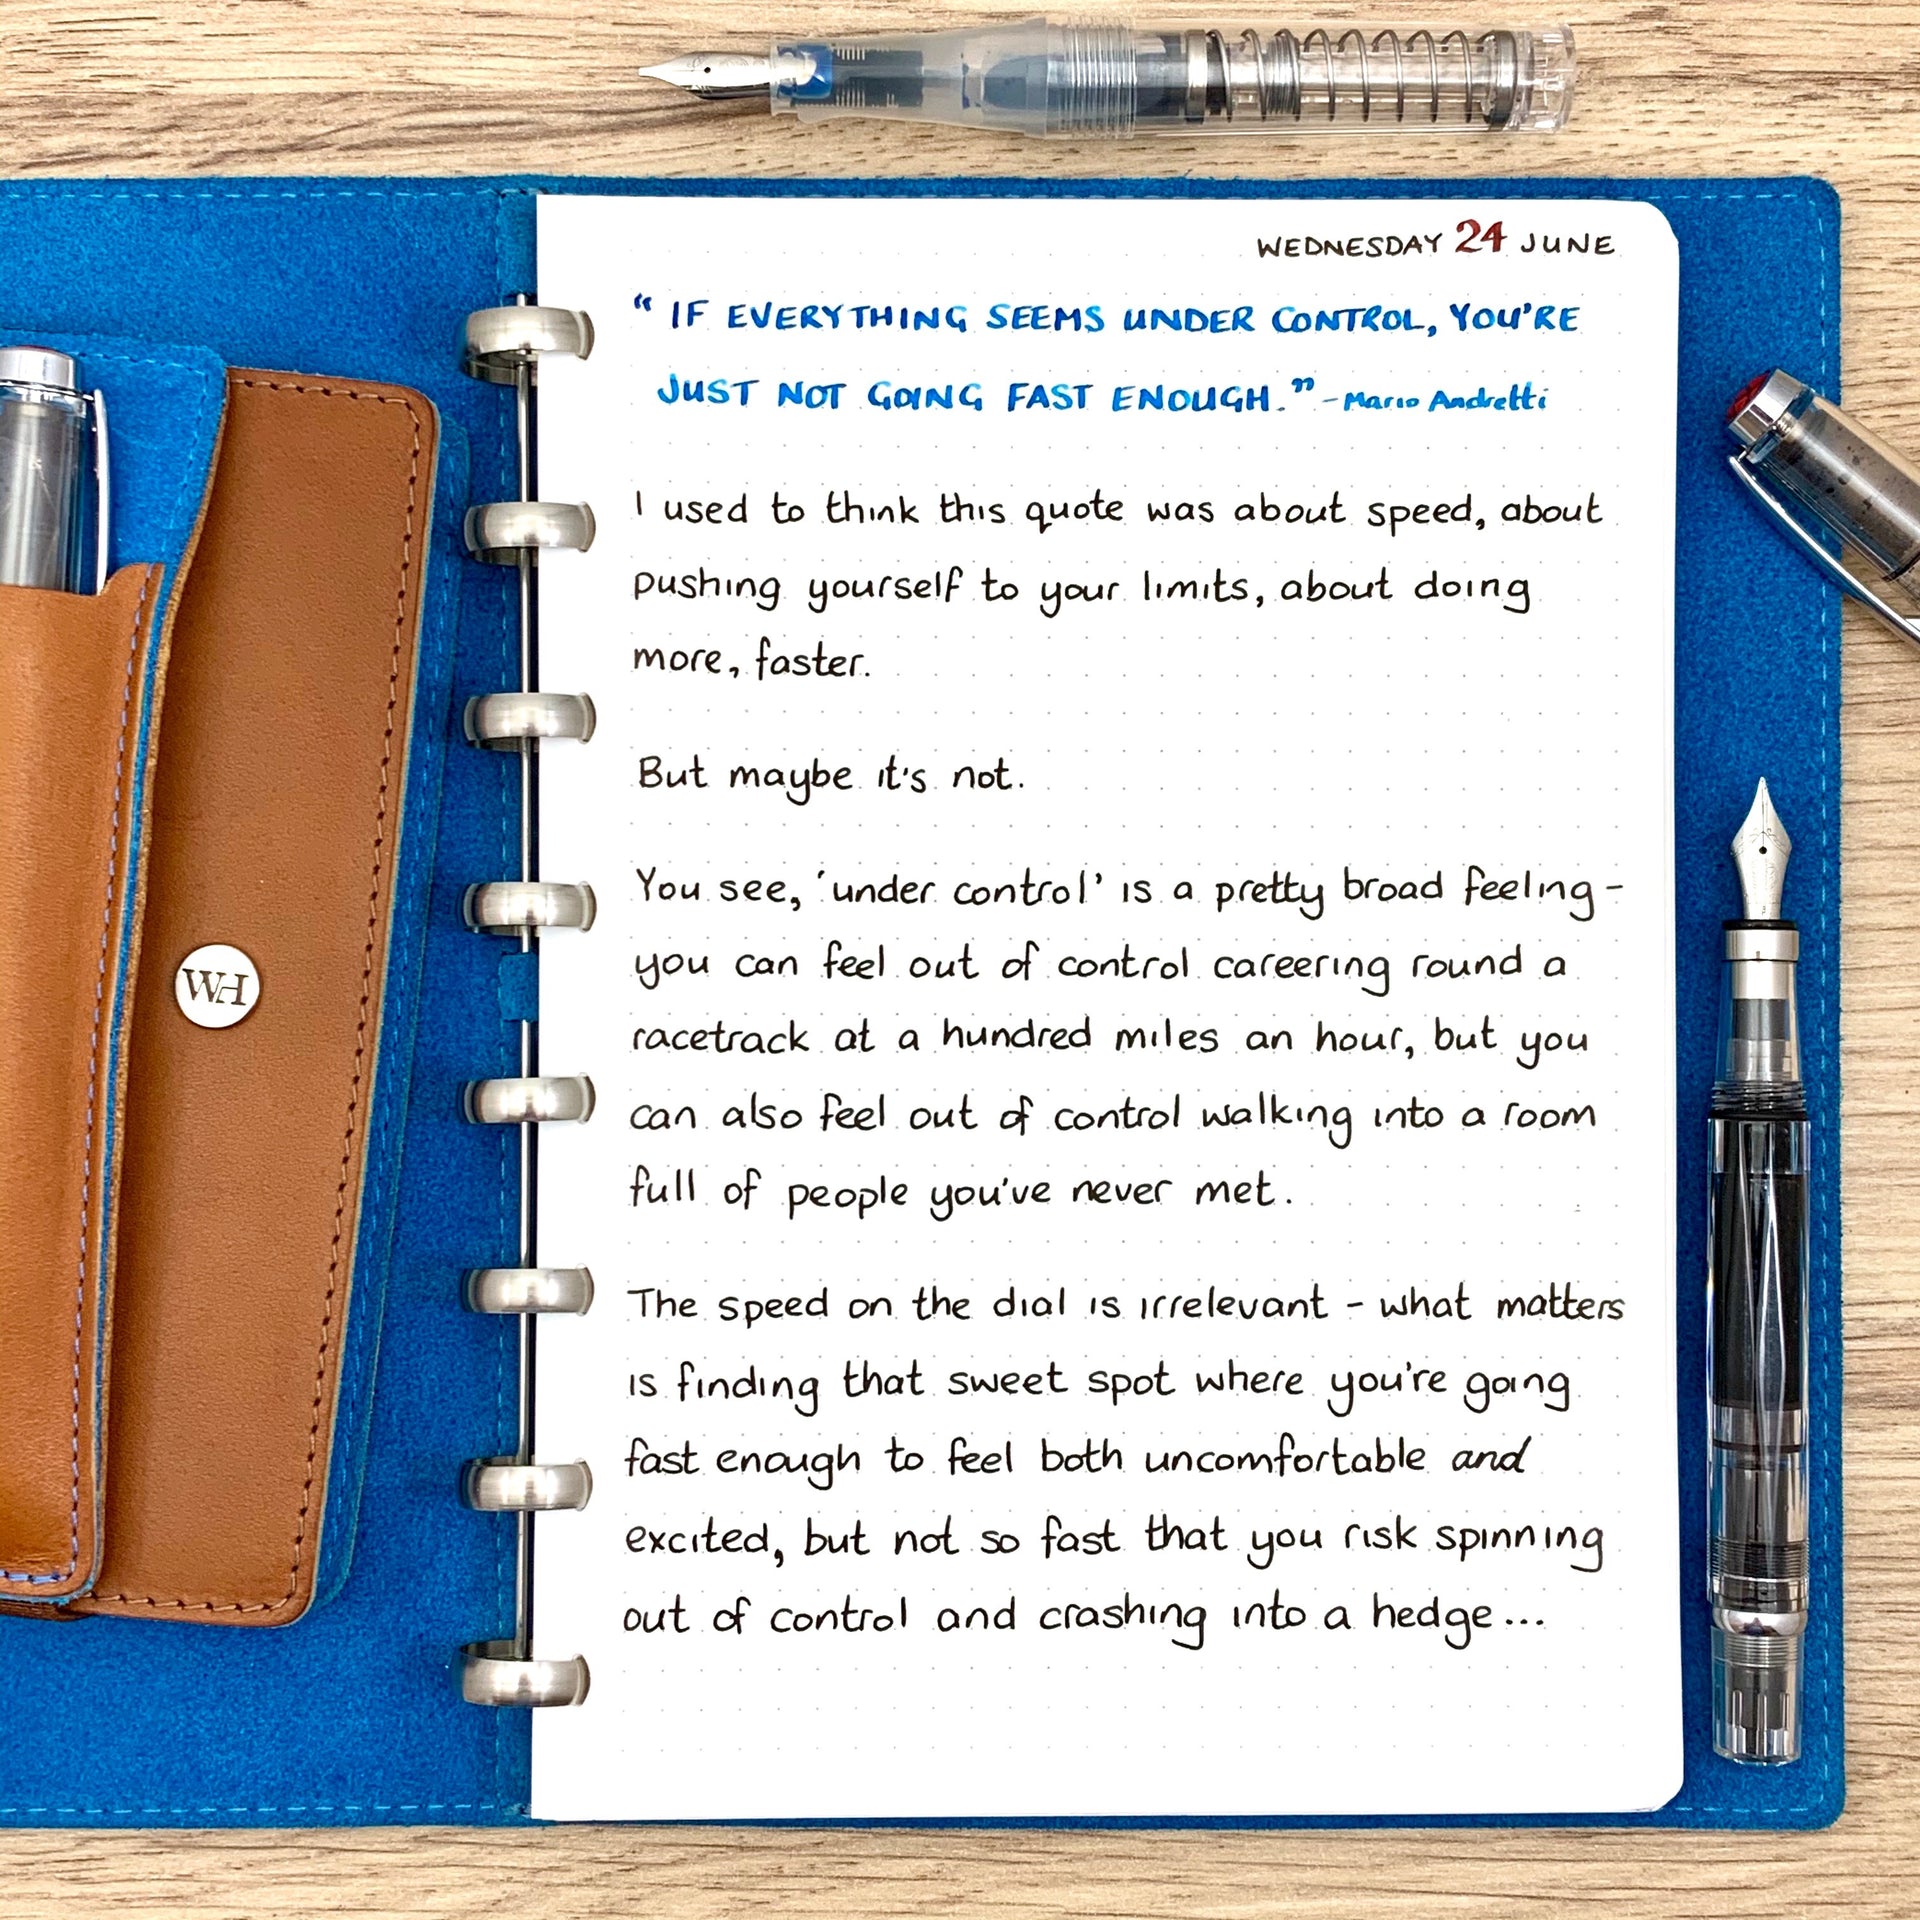 WEDNESDAY 24 JUNE
“ IF EVERYTHING SEEMS UNDER CONTROL, YOU'RE
JUST NOT GOING FAST ENOUGH.” - Mario Andretti
I used to think this quote was about speed, about
pushing yourself to your limits, about doing
more, faster.
But maybe it's not.
You see, 'under control' is a pretty broad feeling -
you can feel out of control careering round a
racetrack at a hundred miles an hour, but you
can also feel out of control walking into a room
full of people you've never met.
The speed on the dial is irrelevant - what matters
is finding that sweet spot where you're going
fast enough to feel both uncomfortable and
excited, but not so fast that you risk spinning
out of control and crashing into a hedge...
WH